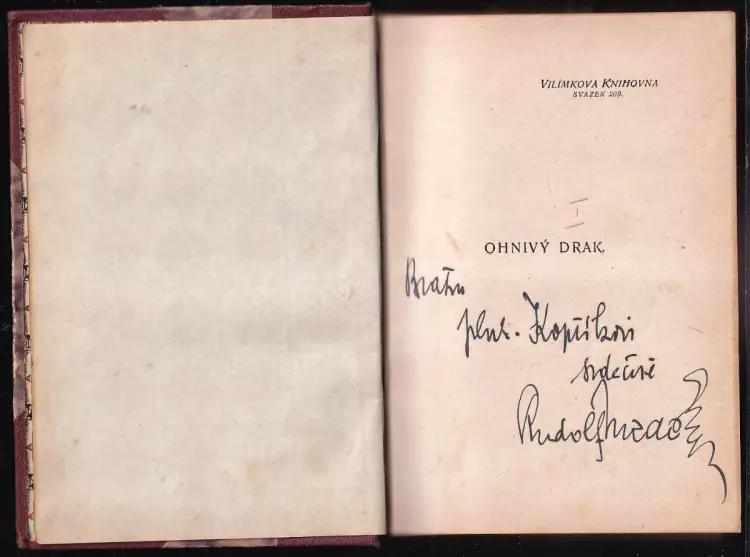 VILÍMKOVA KNIHOVNA
SVAZEK 209.
I
OHNIVÝ DRAK.
Bratru
pluk. Kopříkovi
srdečně
Rudolf Medek